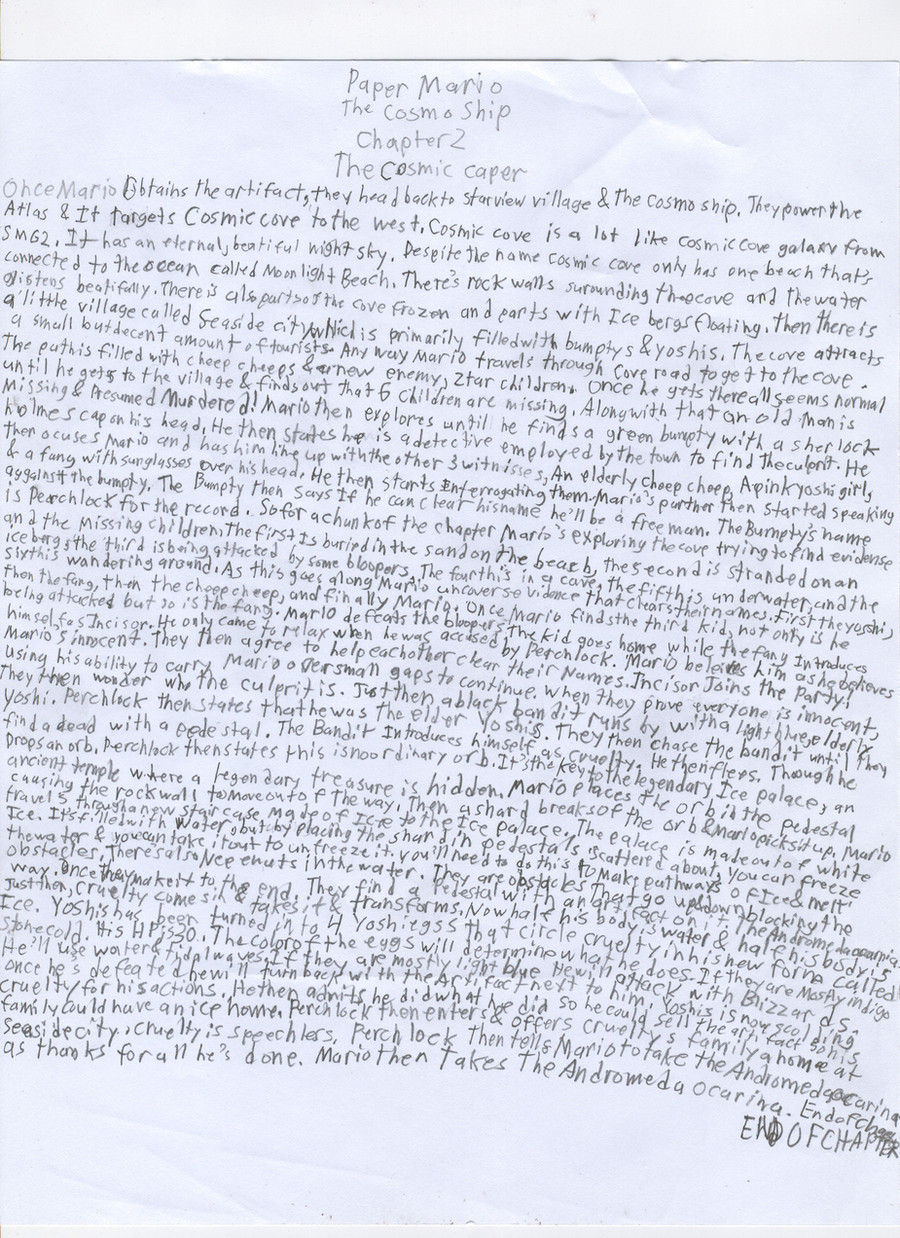 Paper Mario
The Cosmo Ship
Chapter 2
The Cosmic caper
Once Mario Obtains the artifact, they head back to starview village & The Cosmo ship. They power the
Atlas & It targets Cosmic cove to the west. Cosmic cove is a lot like cosmic cove galaxy from
SMG2. It has an eternal, beatiful night sky. Despite the name cosmic cove only has one beach that's
connected to the ocean called Moonlight Beach. There's rock walls surounding the cove and the water
glistens beatifally. There is also parts of the cove frozen and parts with Ice bergs floating. Then there is
a little village called Seaside city, which is primarily filled with bumptys & yoshis. The cove attracts
a small but decent amount of tourists. Any way Mario travels through Cove road to get to the cove.
The path is filled with cheep cheeps & a new enemy, Ztar children. Once he gets there all seems normal
until he gets to the village & finds out that 6 children are missing. Along with that an old man is
Missing & Presumed Murdered! Mario then explores until he finds a green bumpty with a sherlock
holmes cap on his head. He then states he is a detective employed by the town to find The culprit. He
then acuses Mario and has him line up with the other 3 witnesses, An elderly cheep cheep, A pink yoshi girl,
& a fang with sunglasses over his head. He then starts Interrogating them. Mario's partner then started speaking
aggainst the bumpty. The Bumpty then says If he can clear his name he'll be a free man. The Bumpty's name
is Perchlock for the record. So for a chunk of the chapter Mario's exploring the cove trying to find evidense
and the missing children. The first Is buried in the sand on the beach, the second is stranded on an
ice berg, the third is being attacked by some bloopers, The fourth is in a cave, The fifth is underwater, and the
sixth is wandering around. As this goes along Mario uncovers evidance that clears their names. First the yoshi,
then the fang, then the cheep cheep, and finally Mario. Once Mario finds the third kid, not only is he
being attacked but so is the fang. Mario defeats the bloopers, The kid goes home while the fang Introduces
himself as Incisor. He only came to relax when he was accused by Perchlock. Mario beleives him as he believes
Mario's innocent. They then agree to help eachother clear their Names. Incisor Joins the Party!
using his ability to carry Mario over small gaps to continue. When they prove everyone is innocent,
They then wonder who the culprit is. Just then, a black bandit runs by with a light blue, elderly
yoshi. Perchlock then states that he was the elder Yoshis. They then chase the bandit until they
find a dead with a pedestal. The Bandit Introduces himself as, cruelty. He then flees. Though he
Drops an orb. Perchlock then states this is no ordinary orb. It's the key to the legendary Ice palace, an
ancient temple where a legendary treasure is hidden. Mario places the orb in the pedestal
causing the rock wall to move out of The way. Then a shard breaks of the orb & Mario picks it up. Mario
travels through a new staircase made of Ice to the Ice palace. The palace is made out of white
Ice. It's filled with water, but by placing the shard in pedestals scattered about, you can freeze
the water & you can take it out to unfreeze it. You'll need to do this to Make pathways of Ice & melt
obstacles. There's also Neenuts in the water. They are obstacles That go up & down blocking the
way. Once they make it to the end. They find a Pedestal with an artifact on it. The Andromeda ocarina.
Just then, cruelty comes in & takes it & transforms. Now half his body is water & half his body is
Ice. Yoshis has been turned in to 4 Yoshi eggs that circle cruelty in his new form called
stone cold. His HP is 30. The color of the eggs will determine what he does. If they are Mostly indigo
He'll use water & tidal waves. If they are mostly light blue He will attack with Blizzards.
once he's defeated he will turn back with the Artifact next to him. Yoshis is now scolding
cruelty for his actions. He then admits he did what he did so he could sell the artifact so his
family could have a nice home. Perchlock then enters & offers cruelty's family a home at
Seaside city. cruelty is speechless. Perchlock Then tells Mario to take the Andromeda ocarina
as thanks for all he's done. Mario then Takes The Andromeda Ocarina. End of chap
END OF CHAPTER